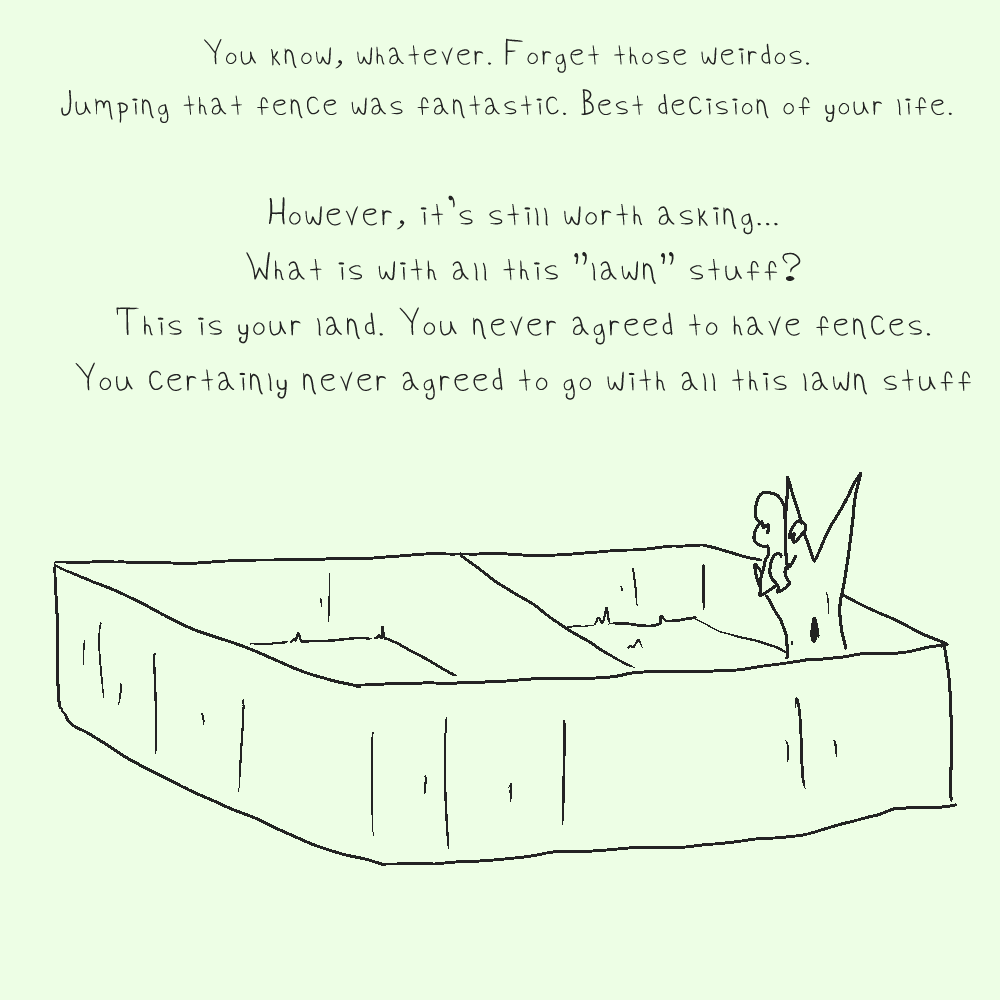 You know, whatever. Forget those weirdos.
Jumping that fence was fantastic. Best decision of your life.
However, it's still worth asking...
What is with all this "lawn" stuff?
This is your land. You never agreed to have fences.
You certainly never agreed to go with all this lawn stuff